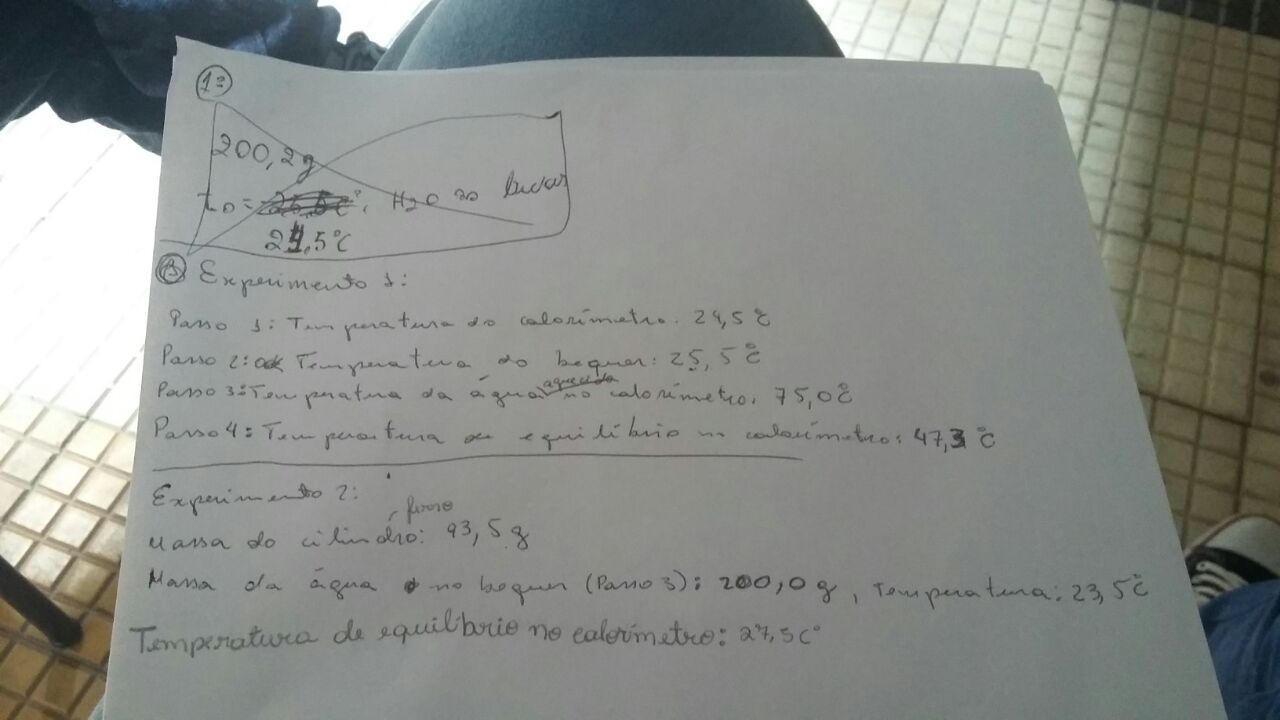 1º
200,2g
t₀ = 25,5°C, H₂O no
24,5°C
B Experimento 1:
Passo 1: Temperatura do calorímetro. 24,5°C
Passo 2: Temperatura do bequer: 25,5°C
Passo 3: Temperatura da água aquecida no calorímetro. 75,0°C
Passo 4: Temperatura de equilíbrio no calorímetro: 47,3°C
Experimento 2:
ferro
Massa do cilindro: 93,5 g
Massa da água no bequer (Passo 3): 200,0 g, Temperatura: 23,5°C
Temperatura de equilíbrio no calorímetro: 27,5C°